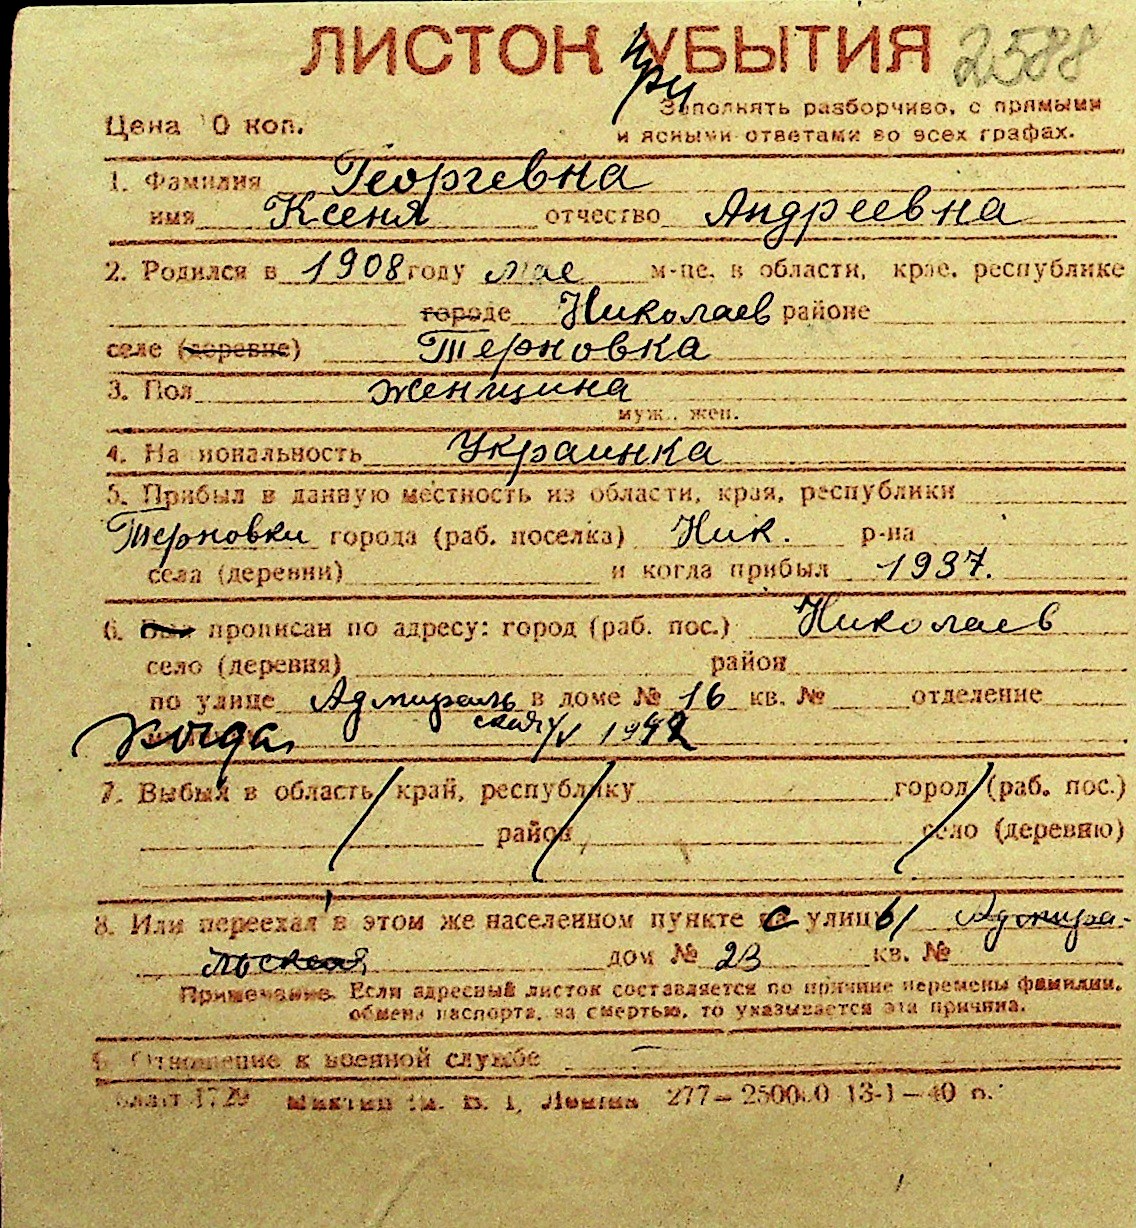 ЛИСТОК при УБЫТИЯ 2588
Цена 0 коп.
Заполнять разборчиво, с прямыми
и ясными ответами во всех графах.
1. Фамилия Георгевна
имя Ксеня отчество Андреевна
2. Родился в 1908 году мае м-це, в области, крае, республике
городе Николаев районе
селе (деревне) Терновка
3. Пол женщина
муж., жен.
4. На иональность Украинка
5. Прибыл в данную местность из области, края, республики
Терновки города (раб. поселка) Ник. р-на
села (деревни) и когда прибыл 1937.
6. Был прописан по адресу: город (раб. пос.) Николаев
село (деревня) район
по улице Адмираль в доме № 16 кв. № отделение
ская
когда 1942
7. Выбыл в область, край, республику город (раб. пос.)
район село (деревню)
8. Или переехал в этом же населенном пункте с улицы Адмира-
льская дом № 23 кв. №
Примечание. Если адресный листок составляется по причине перемены фамилии,
обмена паспорта, за смертью, то указывается эта причина.
9. Отношение к военной службе —
1729 им. В. И. Ленина 277— 13-1—40 п.